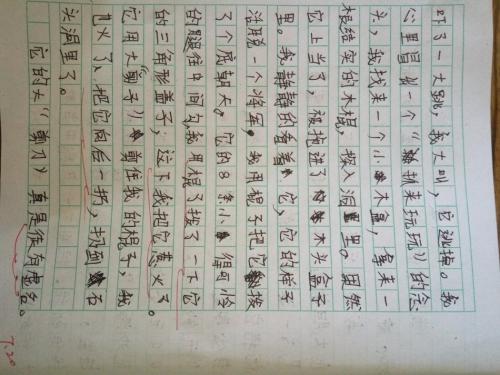 吓了一大跳，我大叫，它跳掉。我
心里冒出一个《抓来玩玩》的念
头，我找来一个小木盒，拿来一
根结实的木棍，探入洞里。果然
它上当了，被抱进了木头盒子
里。我静静的看着它，它的样子
活脱一个将军。我用棍子把它挨
了个底朝天。它的8条小得可怜
的腿往中间勾，我用棍子拨了一下它
的三角形盖子，这下我把它惹火了。
它用大《剪子》剪住我的棍子，我
也火了，把它向后一扔，扔到石
头涡里了。
它的大《剪刀》真是徒有虚名。
7.20